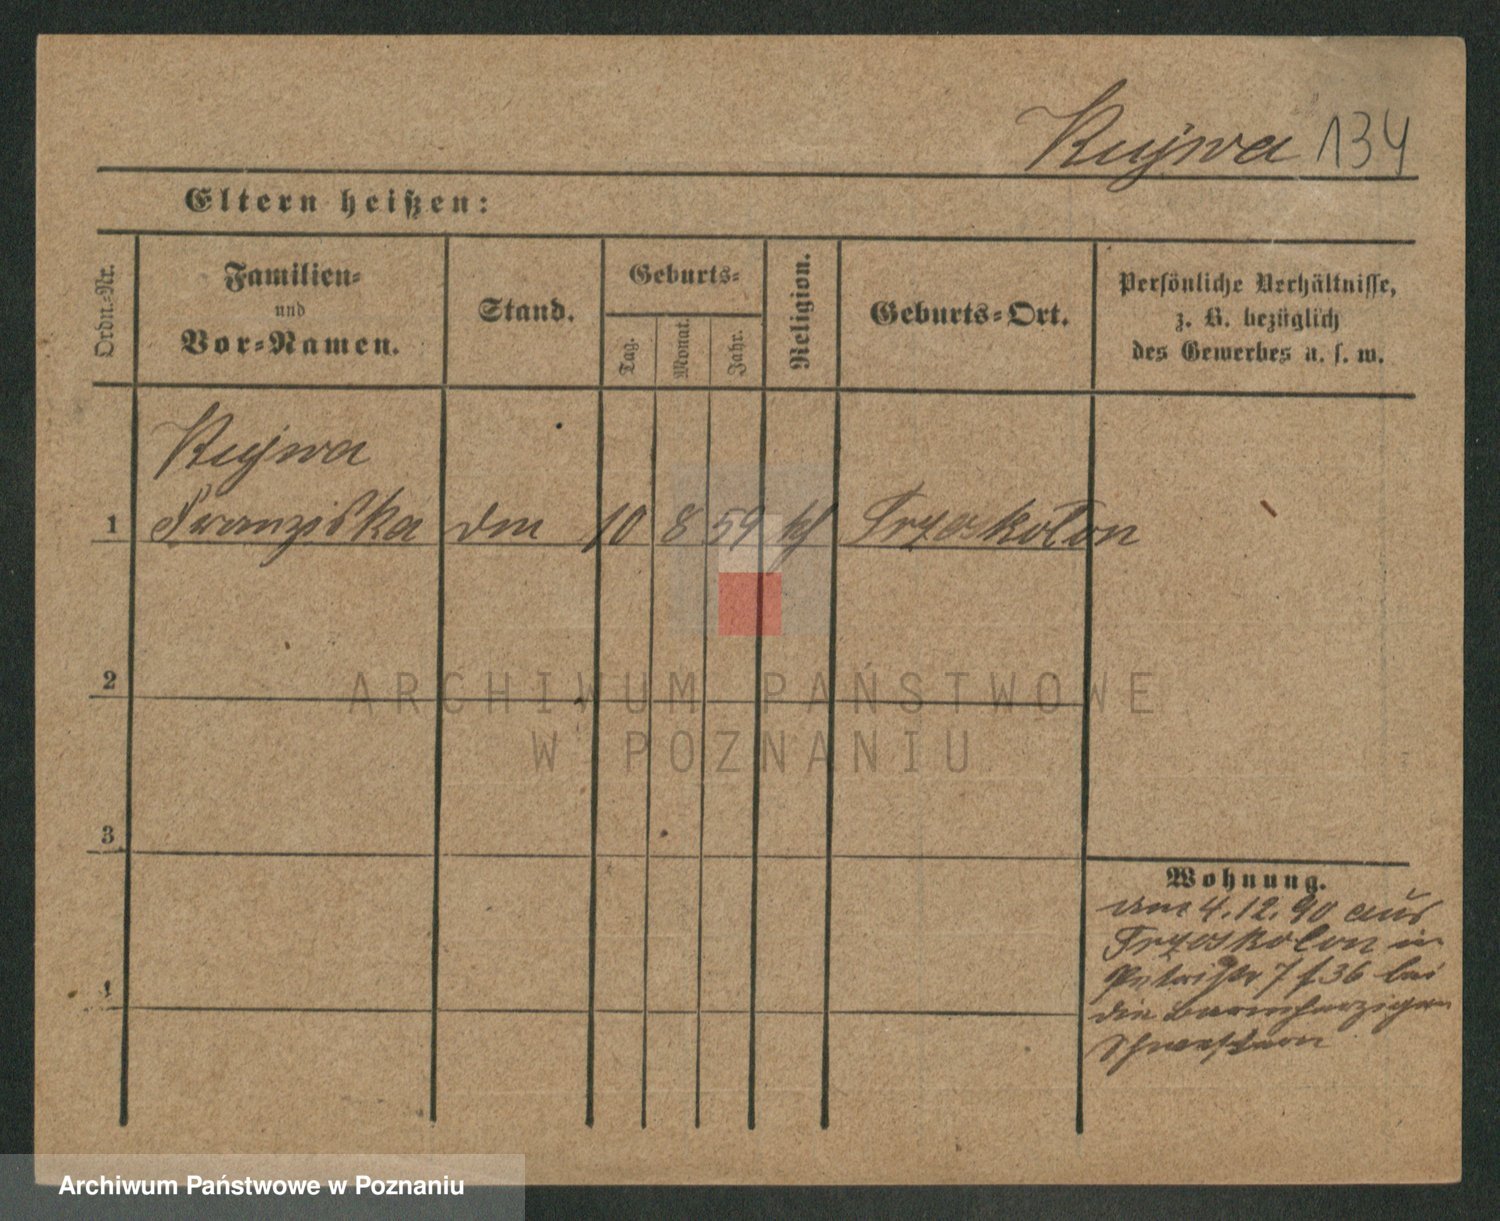 Kujwa 134
Eltern heißen:
Ordn.-Nr.
Familien-
und
Vor-Namen.
Stand.
Geburts-
Tag.
Monat.
Jahr.
Religion.
Geburts-Ort.
Persönliche Verhältnisse,
z. B. bezüglich
des Gewerbes u. s. w.
Kujwa
1 Franziska 10 8 59 kth Trzoskolon
2
ARCHIWUM PAŃSTWOWE
W POZNANIU
3
Wohnung.
am 4.12.90 aus
Trzoskolon in
7 36 bei
die barmherzigen
Schwestern
4
Archiwum Państwowe w Poznaniu